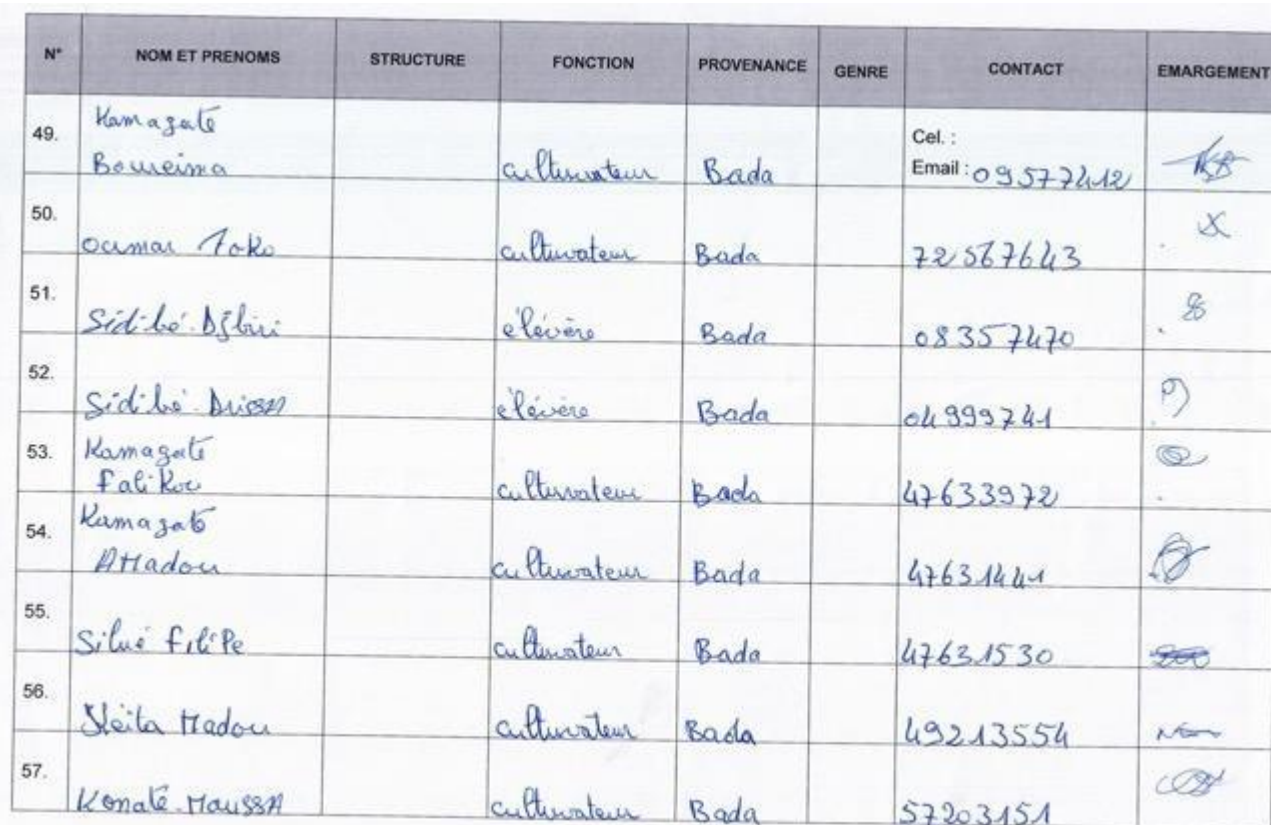 N° NOM ET PRENOMS STRUCTURE FONCTION PROVENANCE GENRE CONTACT EMARGEMENT
49. Kamagaté
Boureima cultivateur Bada Cel. :
Email : 09577412
50. oumar Toko cultivateur Bada 72567643
51. Sidibé Djbiri élévère Bada 08357470
52. Sidibé Drissa élévère Bada 04999741
53. Kamagaté
Falikou cultivateur Bada 47633972
54. Kamagaté
AMadou cultivateur Bada 47631441
55. Silué FiliPe cultivateur Bada 47631530
56. Keita Madou cultivateur Bada 49213554
57. Konaté Moussa cultivateur Bada 57203151